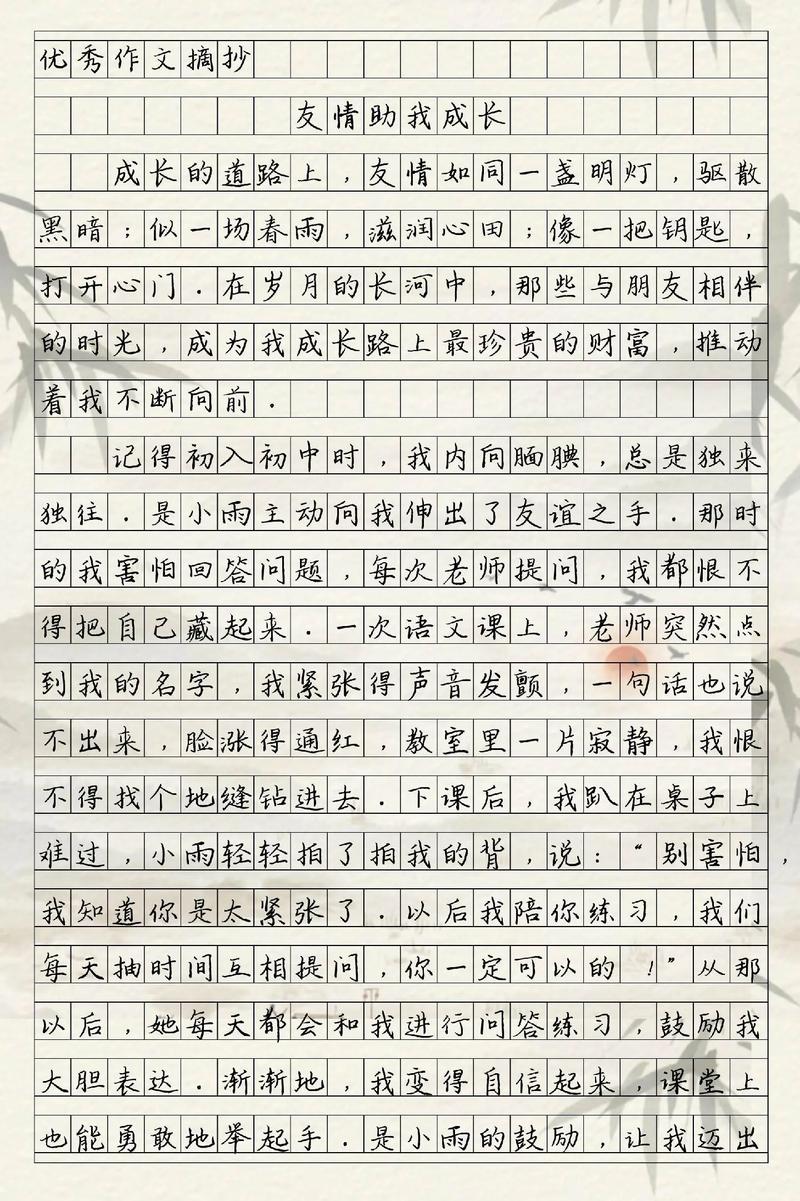 优秀作文摘抄
友情助我成长
成长的道路上，友情如同一盏明灯，驱散
黑暗；似一场春雨，滋润心田；像一把钥匙，
打开心门．在岁月的长河中，那些与朋友相伴
的时光，成为我成长路上最珍贵的财富，推动
着我不断向前．
记得初入初中时，我内向腼腆，总是独来
独往．是小雨主动向我伸出了友谊之手．那时
的我害怕回答问题，每次老师提问，我都恨不
得把自己藏起来．一次语文课上，老师突然点
到我的名字，我紧张得声音发颤，一句话也说
不出来，脸涨得通红，教室里一片寂静，我恨
不得找个地缝钻进去．下课后，我趴在桌子上
难过，小雨轻轻拍了拍我的背，说：“别害怕，
我知道你是太紧张了．以后我陪你练习，我们
每天抽时间互相提问，你一定可以的！”从那
以后，她每天都会和我进行问答练习，鼓励我
大胆表达．渐渐地，我变得自信起来，课堂上
也能勇敢地举起手．是小雨的鼓励，让我迈出